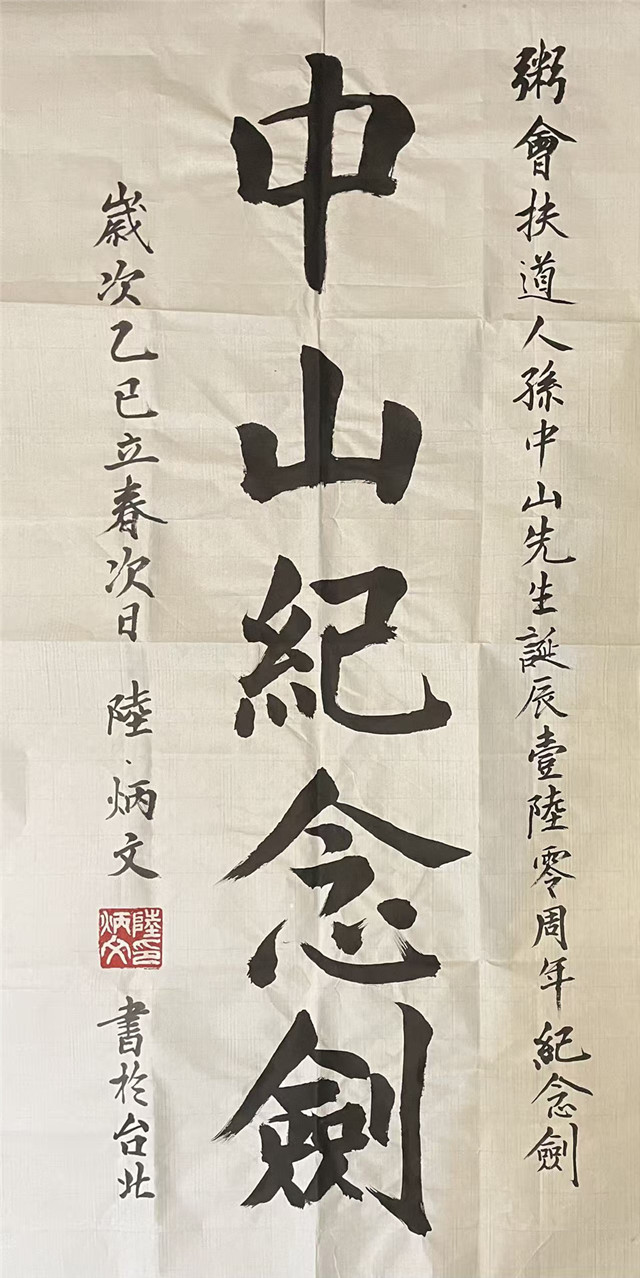 粥會扶道人孫中山先生誕辰壹陸零周年紀念劍
中山紀念劍
歲次乙巳立春次日 陸·炳文
陸炳文印
書於台北